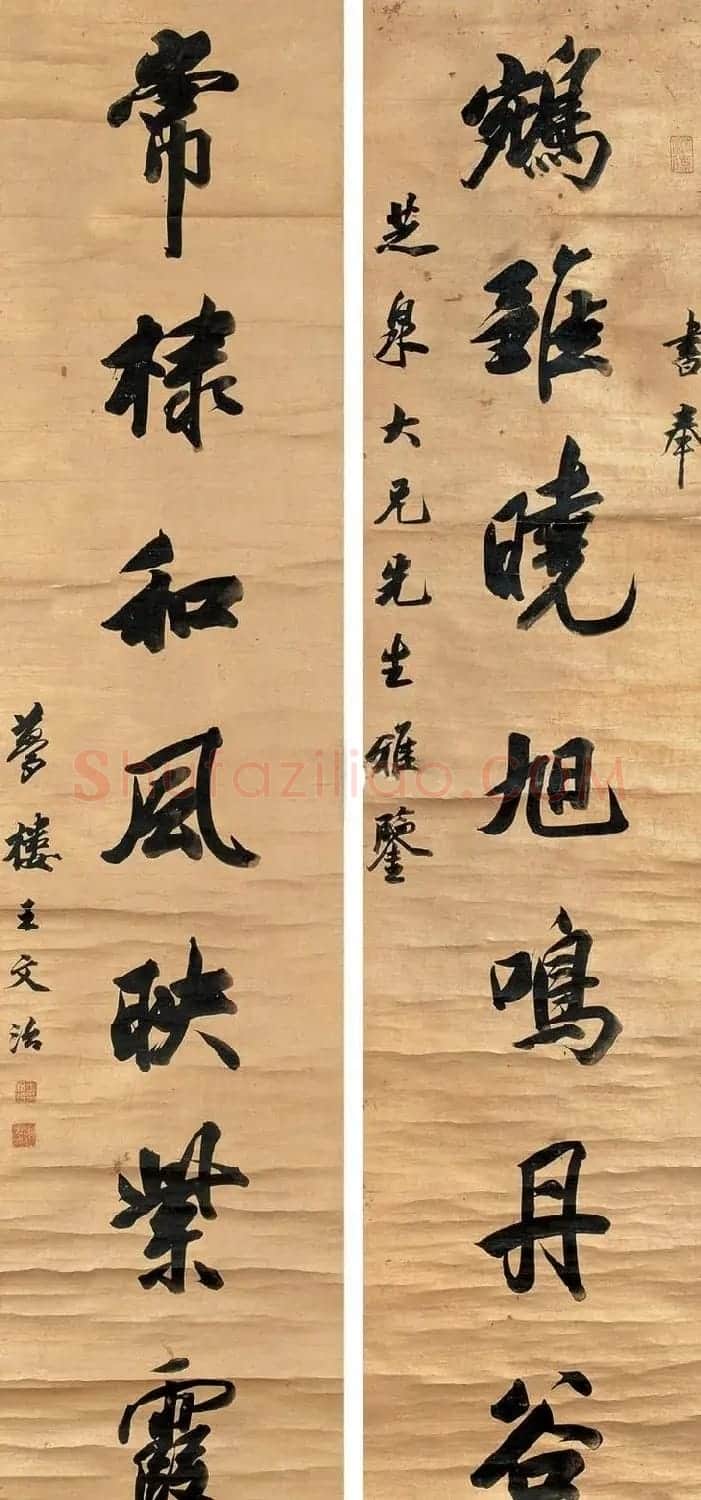 書奉
鵷雛曉旭鳴丹谷
芝泉大兄先生雅鑒
常棣和風映紫霞
夢樓王文治
Shufaziliao.COM